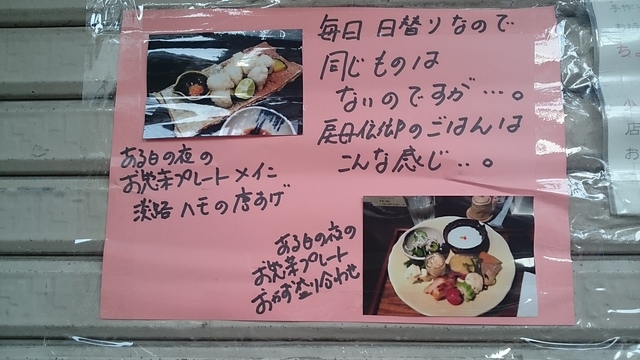 毎日 日替りなので
同じものは
ないのですが…。
のごはんは
こんな感じ…。
ある日の夜の
お惣菜プレートメイン
淡路ハモの唐あげ
ある日の夜の
お惣菜プレート
おかず盛り合わせ